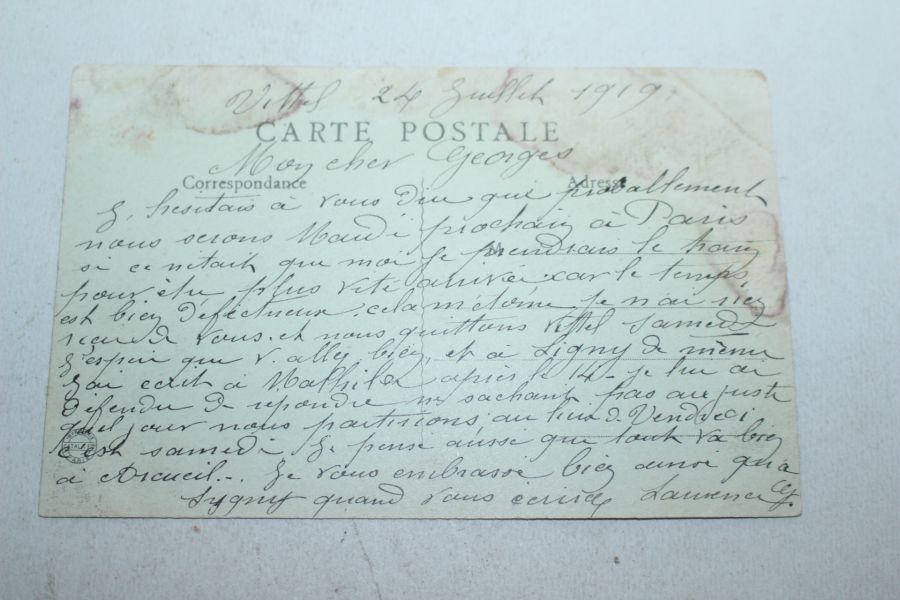 Vittel 24 Juillet 1919
CARTE POSTALE
Mon cher Georges
Correspondance
Adresse
J. hesitais à vous dire que proballement
nous serons Mardi prochain à Paris
si ce netait que moi je prendrais le train
pour être plus vite arrivée car le temps
est bien défectueux. cela m'étonne je n'ai rien
recu de vous. et nous quittons Vittel Samedi
J'espère que v. allez bien, et à Ligny de même
J'ai ecrit à Mathilde après le 14 - je lui ai
défendu d repondre ne sachant pas au juste
quel jour nous partirions au lieu d. Vendredi
c'est samedi Je pense aussi que tout va bien
à Arcueil... Je vous embrasse bien ainsi qu'a
Lygny quand vous ecrirez Laurence